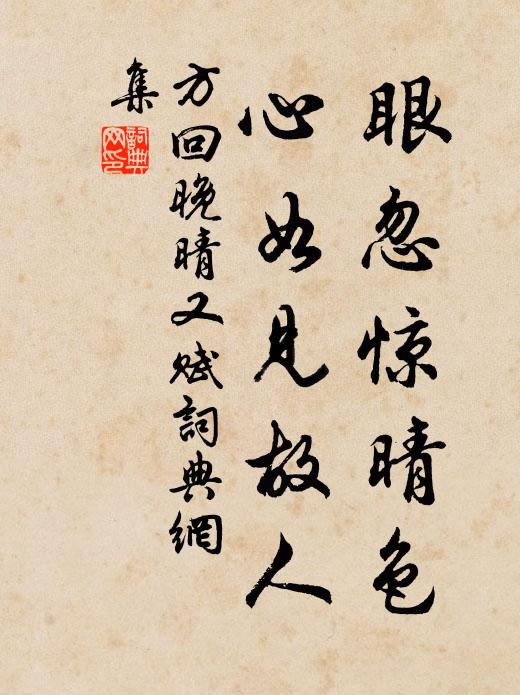 眼忽惊晴色
心如見故人
方回晚晴又赋詞典網
集
詞典
网印